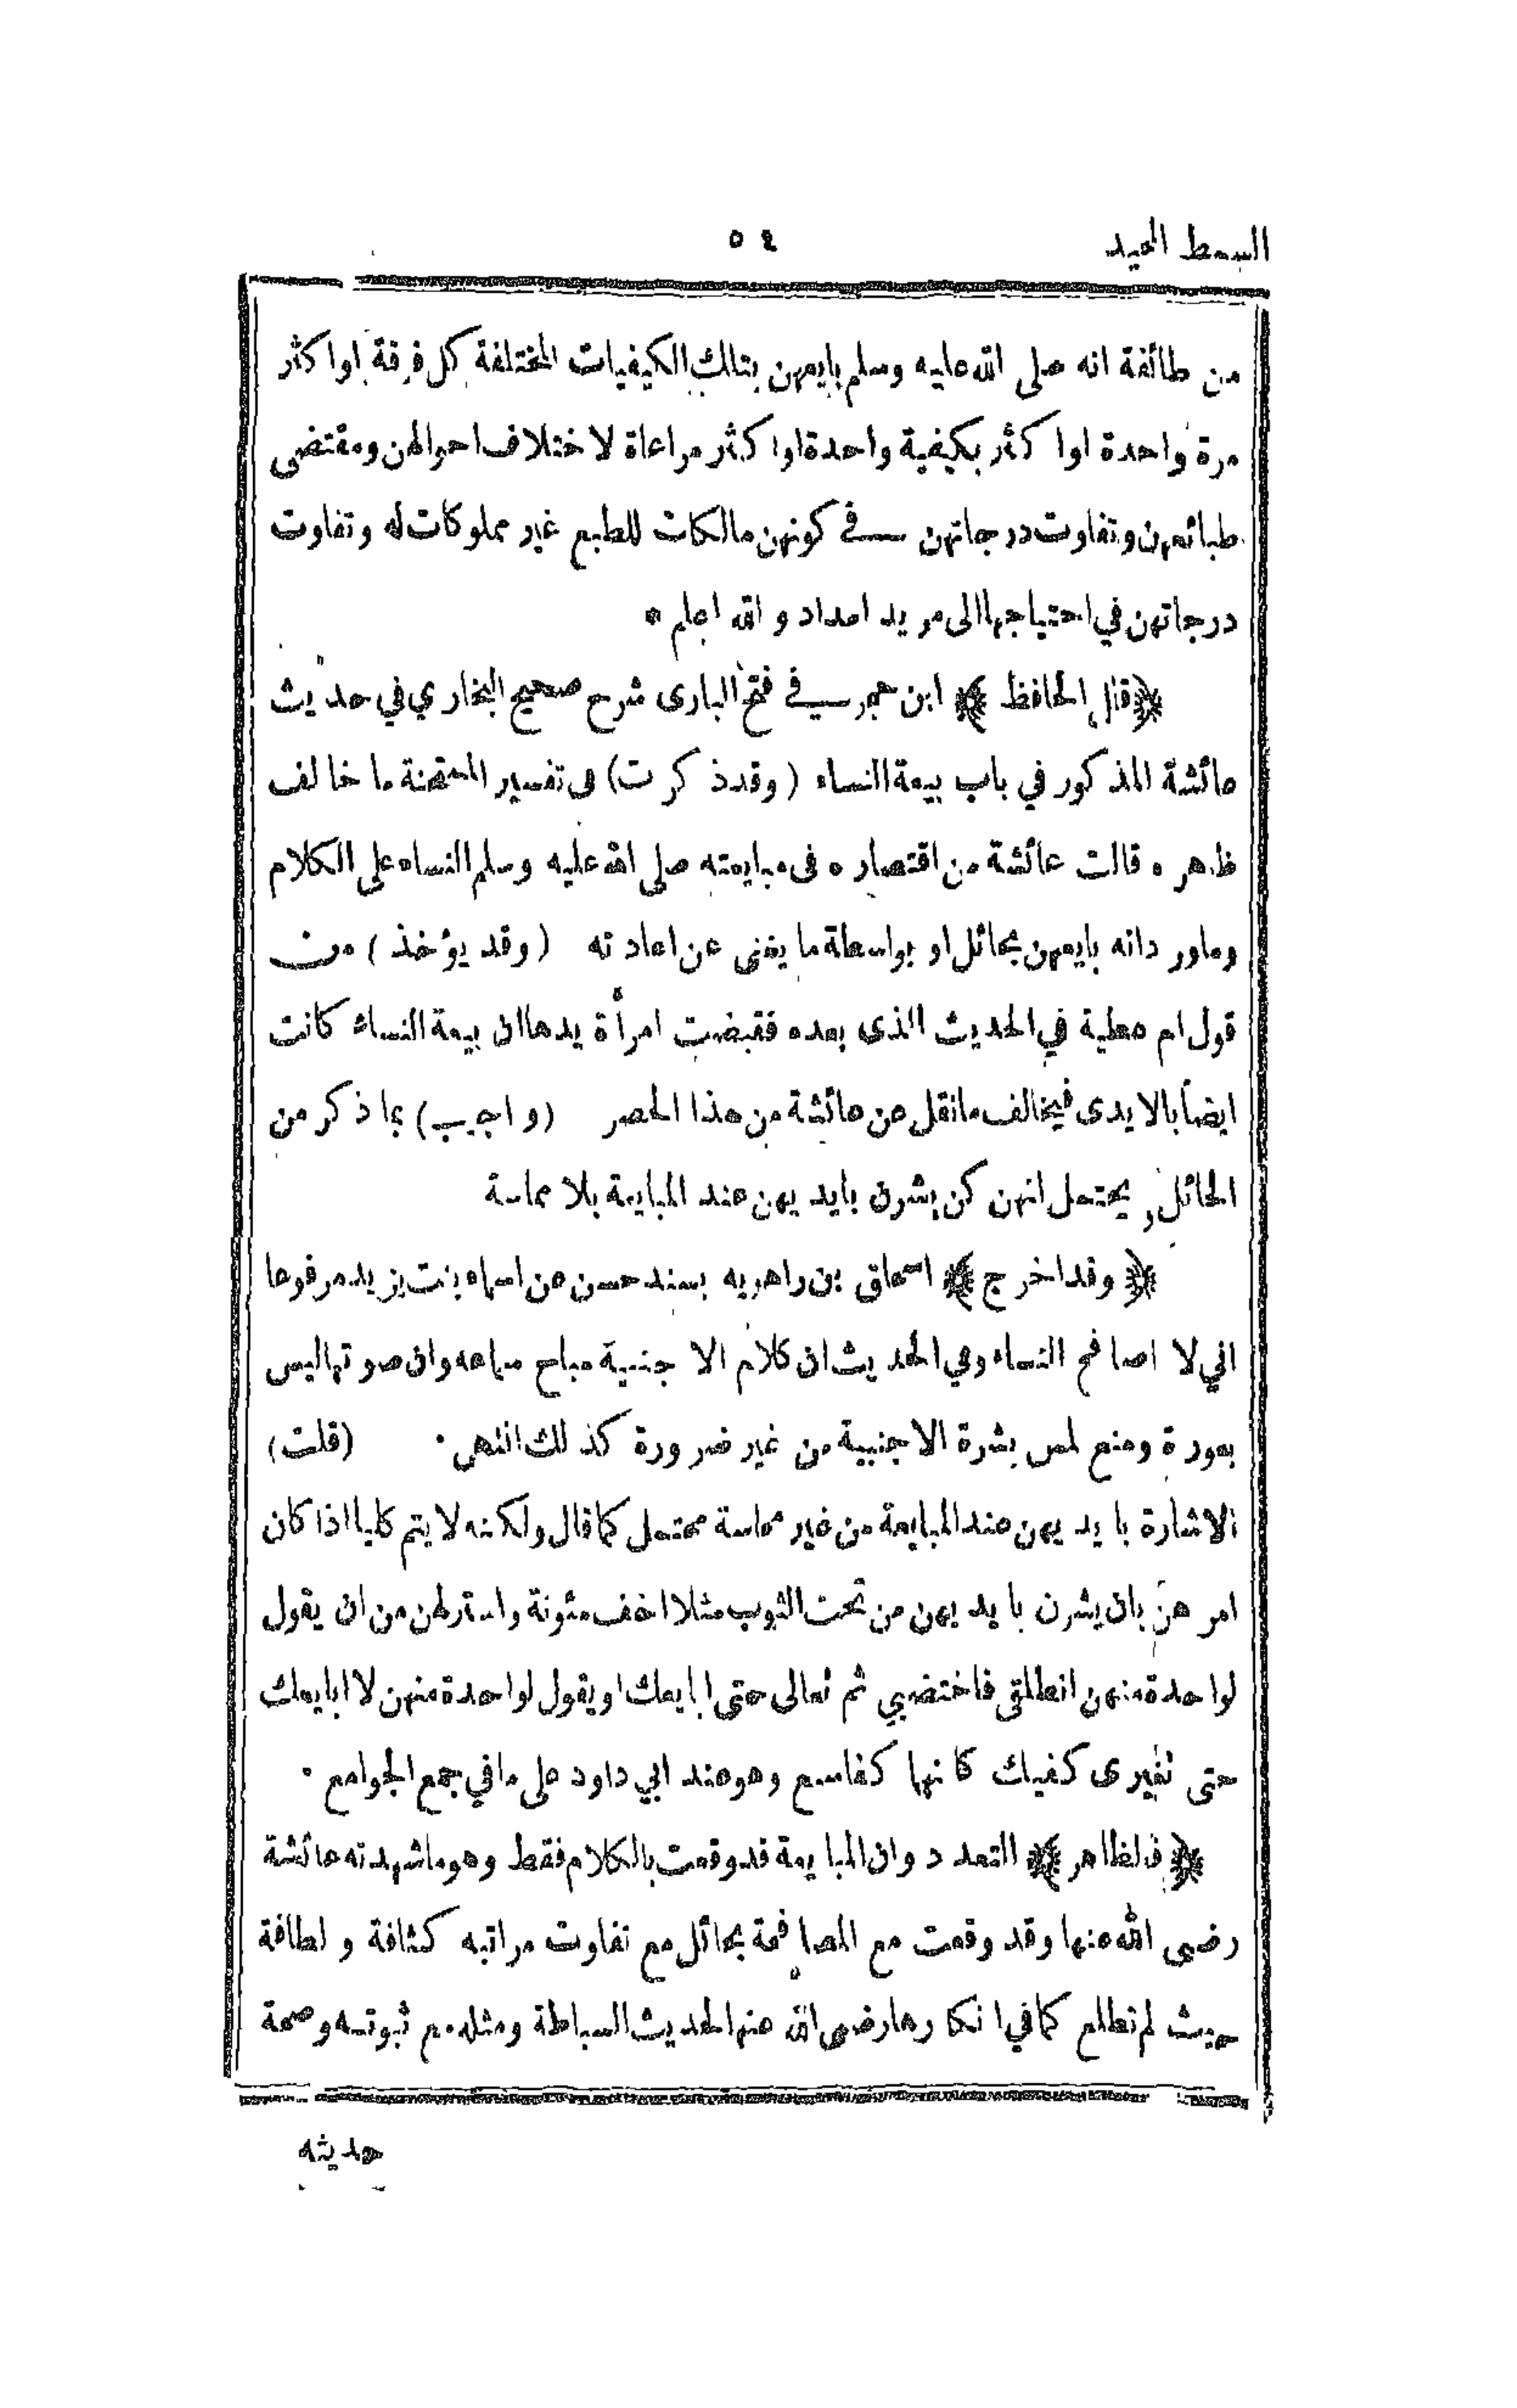 السمط المجيد
٥٤
من طائفة انه صلى الله عليه وسلم بايعهن بتلك الكيفيات المختلفة كل فرقة اوا كثر
مرة واحدة اوا كثر بكيفية واحدة اوا كثر مراعاة لا ختلاف احوالهن ومقتضى
طبائعهن وتفاوت درجاتهن في كونهن مالكات للطبع غير مملوكات له وتفاوت
درجاتهن في احتياجها الى مريد امداد والله اعلم *
﴿ قال الحافظ ﴾ ابن حجر في فتح البارى شرح صحيح البخاري في حديث
عائشة المذكور في باب بيعة النساء (وقد ذكرت) فى تفسير الممتحنة ما خالف
ظاهره قالت عائشة من اقتصاره فى مبايعته صلى الله عليه وسلم النساء على الكلام
وماورد انه بايعهن بحائل او بواسطة ما يغنى عن اعادته (وقد يؤخذ) من
قول ام عطية في الحديث الذى بعده فقبضت امرأة يدها ان بيعة النساء كانت
ايضاً بالايدى فيخالف ما نقل عن عائشة من هذا الحصر (واجيب) بما ذكر من
الحائل ويحتمل انهن كن يشرن بايديهن عند المبايعة بلا مماسة
﴿ وقد اخرج ﴾ اسحاق بن راهويه بسند حسن عن اسماء بنت يزيد مرفوعا
اني لا اصافح النساء وفي الحديث ان كلام الاجنبية مباح سماعه وان صوتها ليس
بعورة ومنع لمس بشرة الاجنبية من غير ضرورة كذلك انتهى • (قلت)
الاشارة بايديهن عند المبايعة من غير مماسة محتمل كما قال ولكنه لا يتم كليا اذا كان
امرهنّ بان يشرن بايديهن من تحت الثوب مثلا اخف مئونة واسترلهن من ان يقول
لواحدة منهن انطلقى فاختضبي ثم تعالى حتى ابايعك او يقول لواحدة منهن لا ابايعك
حتى تغيرى كفيك كانهما كفا سبع وهو عند ابي داود على ما في جمع الجوامع •
﴿ فالظاهر ﴾ التعدد وان المبايعة قد وقعت بالكلام فقط وهو ما شهدته عائشة
رضى الله عنها وقد وقعت مع المصافحة بحائل مع تفاوت مراتبه كثافة ولطافة
حيث لم تطلع كما في انكارها رضى الله عنها لحديث السباطة ومثله مع ثبوته وصحة
حديثه